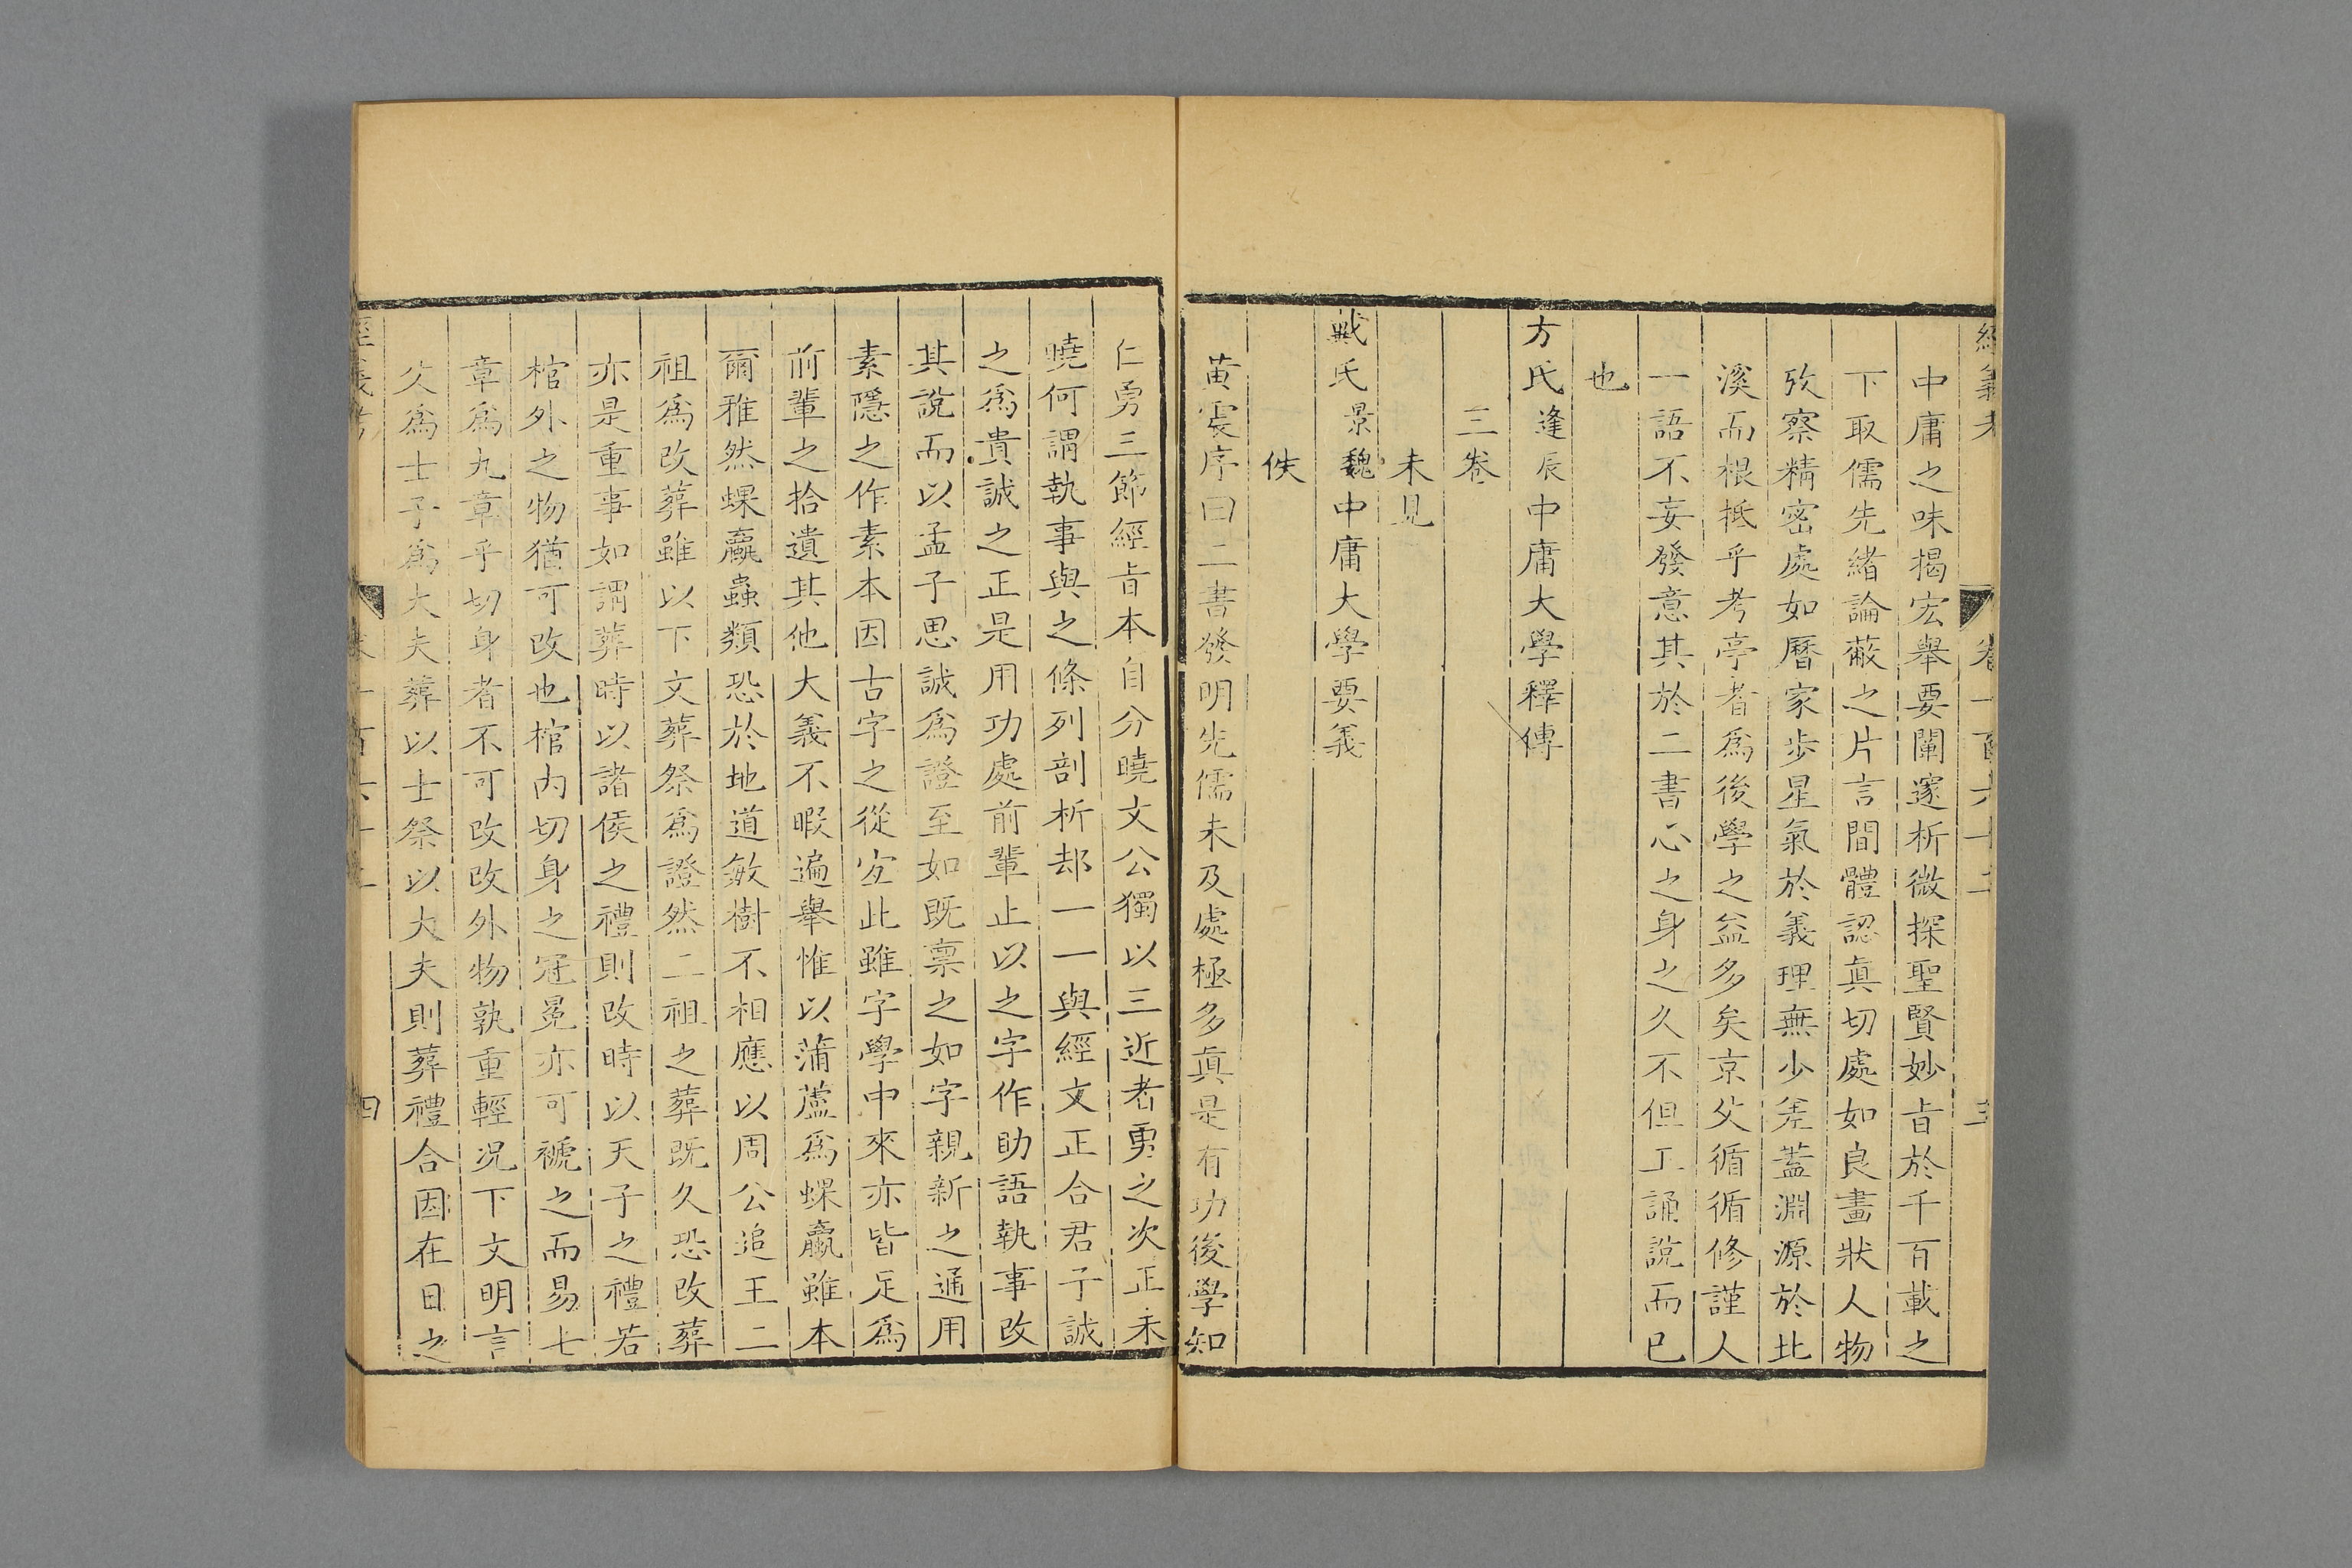 經義考 卷一百六十二 三
中庸之味揭宏舉要闡邃析微探聖賢妙旨於千百載之
下取儒先緒論蔽之片言間體認真切處如良畫狀人物
攷察精密處如曆家步星氣於義理無少差蓋淵源於北
溪而根柢乎考亭者為後學之益多矣京父循循修謹人
一語不妄發意其於二書心之身之久不但工誦說而已
也
方氏逢辰中庸大學釋傳
三卷
未見
戴氏景魏中庸大學要義
佚
黃震序曰二書發明先儒未及處極多真是有功後學知
仁勇三節經旨本自分曉文公獨以三近者勇之次正未
曉何謂執事與之條列剖析却一一與經文正合君子誠
之為貴誠之正是用功處前輩止以之字作助語執事改
其說而以孟子思誠為證至如既禀之如字親新之通用
素隱之作素本因古字之從宐此雖字學中來亦皆足為
前輩之拾遺其他大義不暇遍舉惟以蒲蘆為蜾蠃雖本
爾雅然蜾蠃蟲類恐於地道敏樹不相應以周公追王二
祖為改葬雖以下文葬祭為證然二祖之葬既久恐改葬
亦是重事如謂葬時以諸侯之禮則改時以天子之禮若
棺外之物猶可改也棺內切身之冠冕亦可褫之而易七
章為九章乎切身者不可改改外物孰重輕况下文明言
父為士子為大夫葬以士祭以大夫則葬禮合因在日之
經義考 卷一百六十二 四